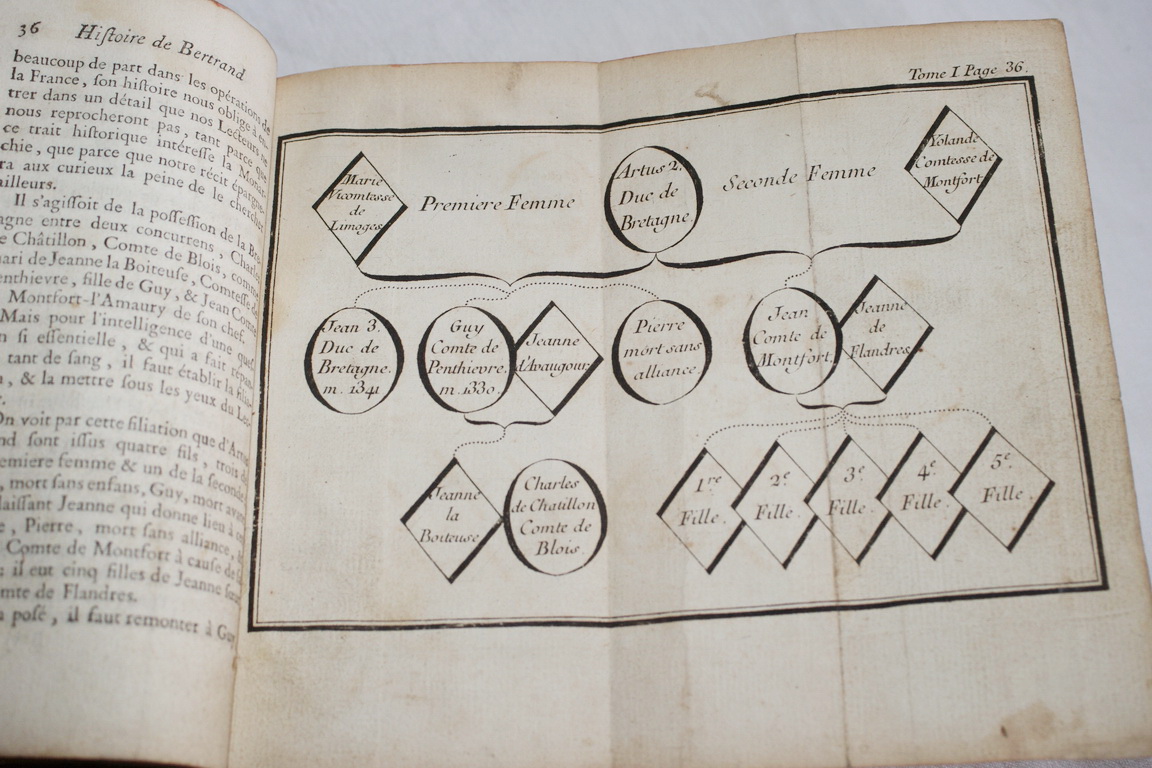 36 Histoire de Bertrand
beaucoup de part dans les opérations de
la France, son histoire nous oblige à
trer dans un détail que nos Lecteurs ne
nous reprocheront pas, tant parce que
ce trait historique intéresse la
chie, que parce que notre récit
ra aux curieux la peine de le chercher
ailleurs.
Il s'agissoit de la possession de la Bre-
agne entre deux concurrens, Charles
e Châtillon, Comte de Blois, comme
ari de Jeanne la Boiteuse, Comtesse de
enthievre, fille de Guy, & Jean Comte
Montfort-l'Amaury de son chef.
Mais pour l'intelligence d'une
n si essentielle, & qui a fait
tant de sang, il faut établir la
, & la mettre sous les yeux du
On voit par cette filiation que d'Artus
nd sont issus quatre fils, trois de
emiere femme & un de la seconde
, mort sans enfans, Guy, mort
laissant Jeanne qui donne lieu à
e, Pierre, mort sans alliance,
Comte de Montfort à cause de
; il eut cinq filles de Jeanne
mte de Flandres.
posé, il faut remonter à Guy
Tome I Page 36.
Marie
Vicomtesse
de
Limoges
Premiere Femme
Artus 2.
Duc de
Bretagne.
Seconde Femme
Yolande
Comtesse de
Montfort
Jean 3.
Duc de
Bretagne.
m. 1341
Guy
Comte de
Penthievre.
m. 1330.
Jeanne
d'Avaugour
Pierre
mort sans
alliance.
Jean
Comte de
Montfort.
Jeanne
de
Flandres
Jeanne
la
Boiteuse
Charles
de Chatillon
Comte de
Blois.
1re
Fille.
2e
Fille.
3e
Fille.
4e
Fille.
5e
Fille.